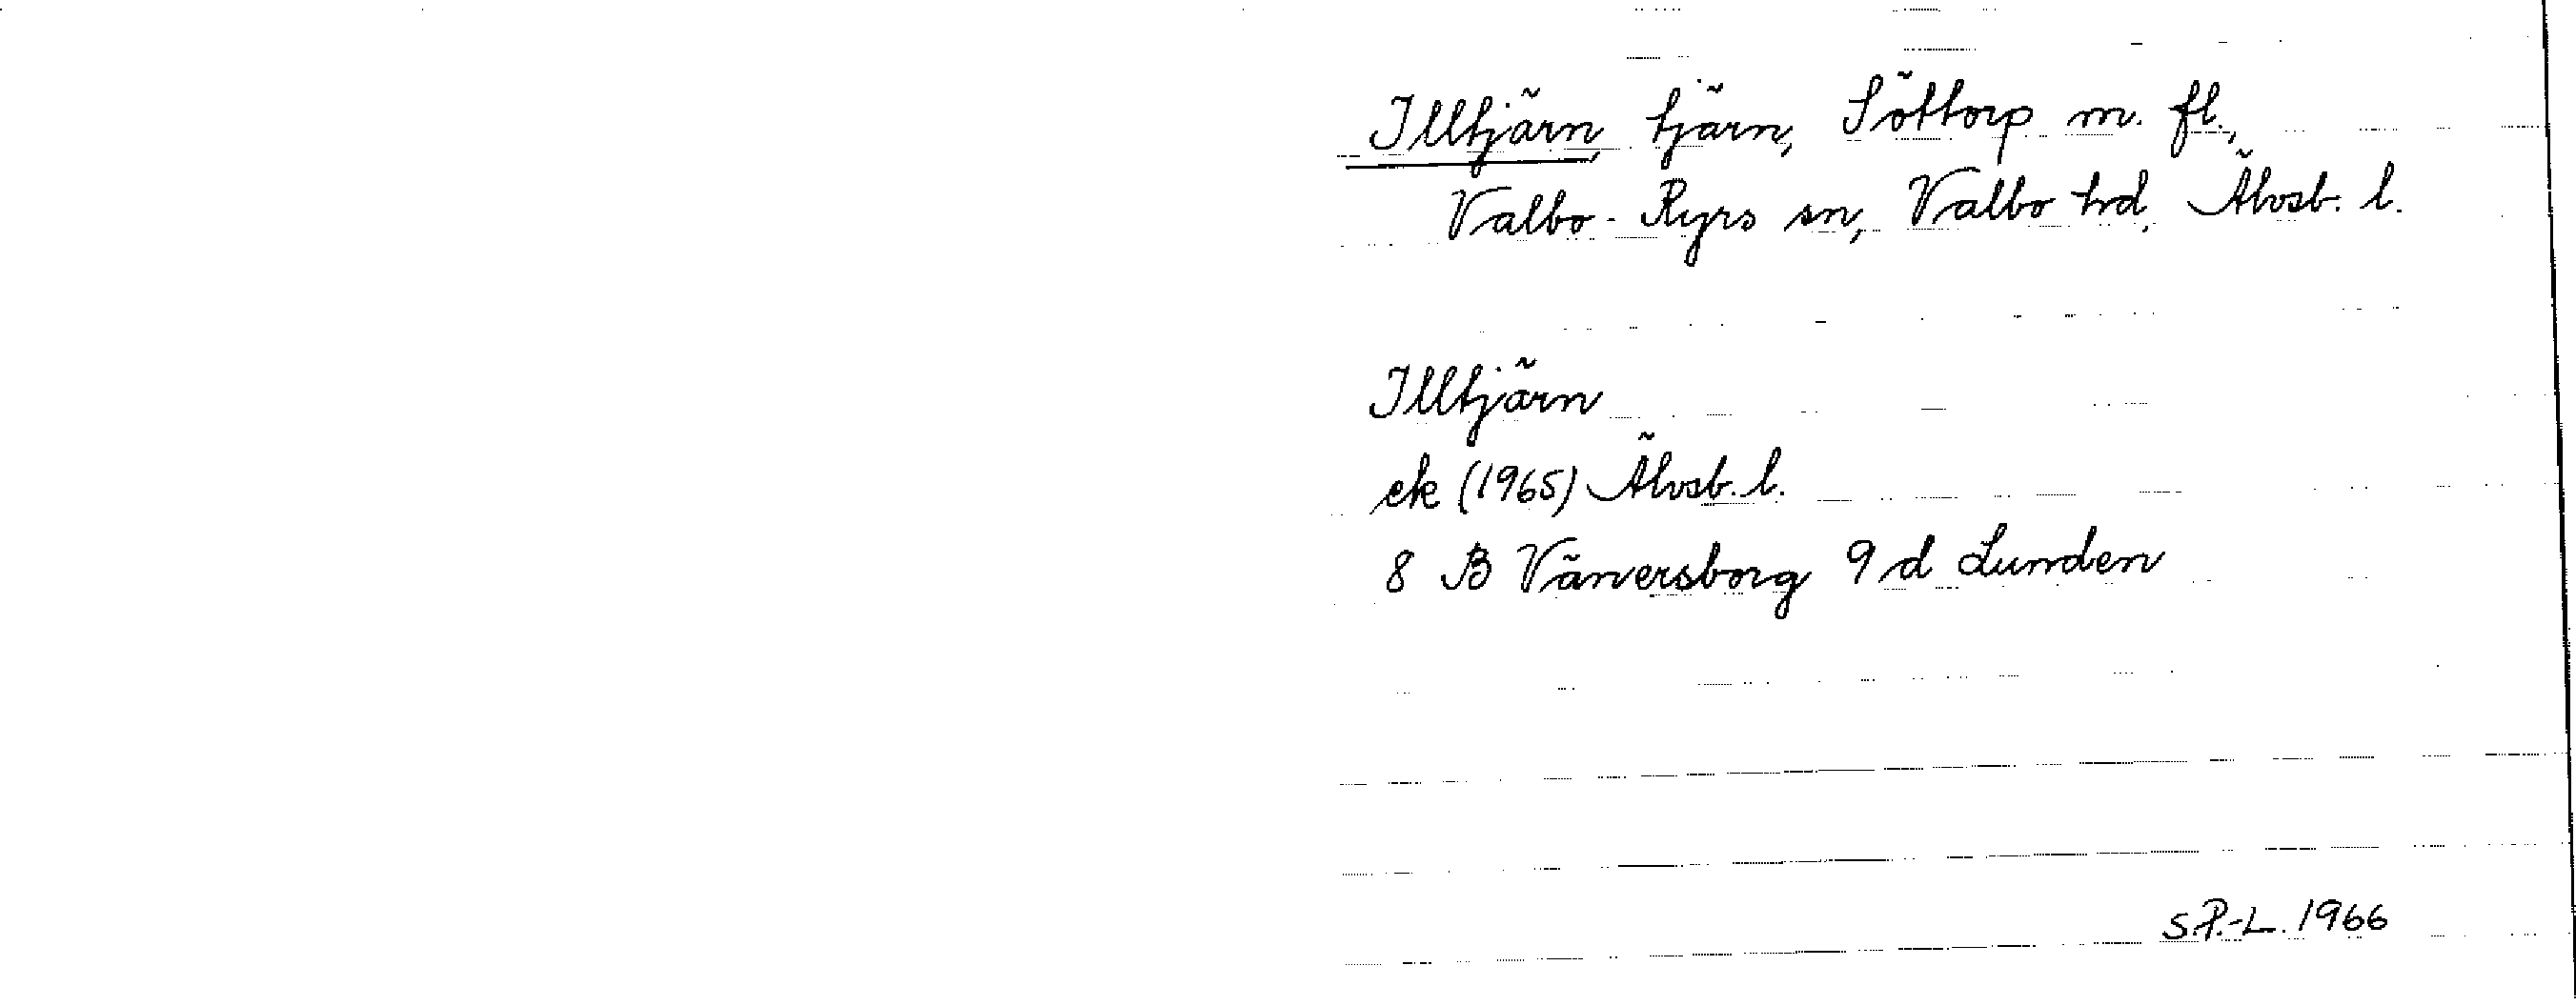 Illtjärn, tjärn, Söttorp m. fl.,
Valbo-Ryrs sn, Valbo hd, Älvsb. l.
Illtjärn
ek (1965) Älvsb. l.
8 B Vänersborg 9 d Lunden
S.P.-L. 1966